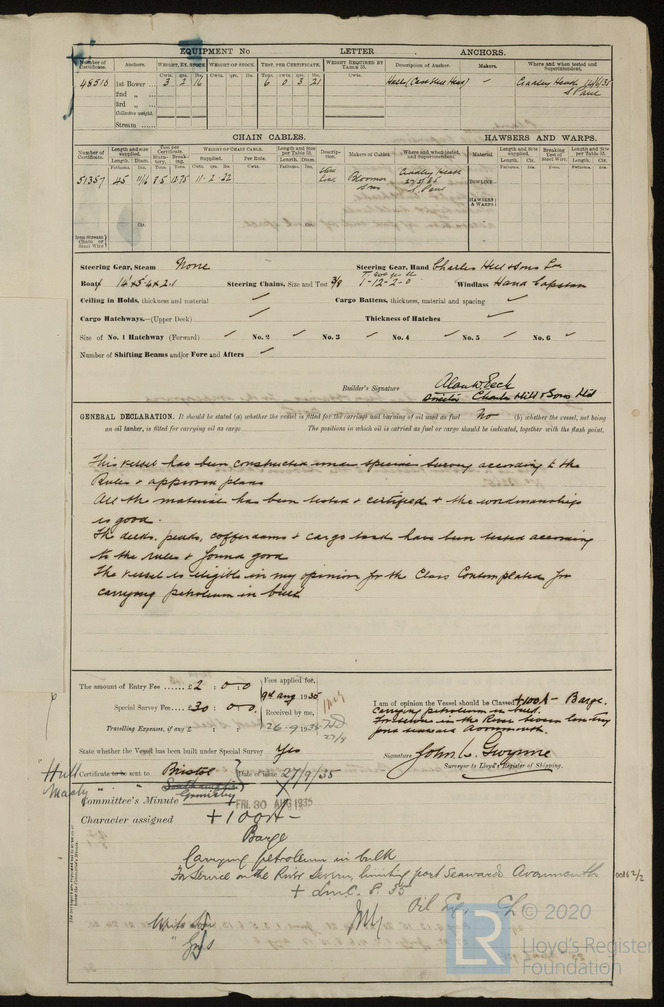 EQUIPMENT No LETTER ANCHORS.
Number of Certificate. Anchors. WEIGHT, EX. STOCK WEIGHT OF STOCK. TEST, PER CERTIFICATE. WEIGHT REQUIRED BY TABLE 53. Description of Anchor. Makers. Where and when tested and Superintendent.
Cwts. qrs. lbs. Cwts. qrs. lbs. Tons. Cwts. qrs. lbs. Cwts.
48510 1st Bower 3 2 16 6 0 3 21 Halls (Cast Steel Head) Cradley Heath
2nd „ S Paul
3rd „
Collective weight.
Stream
CHAIN CABLES. HAWSERS AND WARPS.
Number of Certificate. Length and size supplied. Test per Certificate. WEIGHT OF CHAIN CABLE. Length and Size per Table 53. Description. Makers of Cables. Where and when tested, and Superintendent. Material. Length and Size supplied. Breaking Test of Steel Wire. Length and Size per Table 53.
Length. Diam. Statutory. Breaking. Supplied. Per Rule. Length. Diam. Length. Cir. Length. Cir.
51357 45 11/16 8·5 12·75 11·2·22 Bloomer Sons Cradley Heath
S. Paul
TOWLINE
HAWSERS & WARPS
Iron Stream Chain or Steel Wire
Steering Gear, Steam None Steering Gear, Hand Charles Hill & Sons Ld
Boat 14'×5'·4×2·1 Steering Chains, Size and Test 3/8 1-12-2-0 Windlass Hand Capstan
Ceiling in Holds, thickness and material ✓ Cargo Battens, thickness, material and spacing ✓
Cargo Hatchways.—(Upper Deck) ✓ Thickness of Hatches ✓
Size of No. 1 Hatchway (Forward) ✓ No. 2 ✓ No. 3 ✓ No. 4 ✓ No. 5 ✓ No. 6 ✓
Number of Shifting Beams and/or Fore and Afters ✓
Builder's Signature
Director Charles Hill & Sons Ltd
GENERAL DECLARATION. It should be stated (a) whether the vessel is fitted for the carriage and burning of oil used as fuel No (b) whether the vessel, not being
an oil tanker, is fitted for carrying oil as cargo The positions in which oil is carried as fuel or cargo should be indicated, together with the flash point.
This vessel has been constructed under special survey according to the
Rules & approved plans
All the material has been tested & certified & the workmanship
is good.
The decks, peaks, cofferdams & cargo tanks have been tested according
to the rules & found good
The vessel is eligible in my opinion for the Class Contemplated for
carrying petroleum in bulk
The amount of Entry Fee £2 : 0 : 0 Fees applied for,
9th Aug 1935
Special Survey Fee £30 : 0 : 0 Received by me,
Travelling Expenses, if any £ : : 26·9·1935
I am of opinion the Vessel should be Classed +100A- Barge.
Carrying petroleum in bulk.
For service in the River Severn limiting
port seawards Avonmouth.
State whether the Vessel has been built under Special Survey Yes
Signature John L. Gwynne
Surveyor to Lloyd's Register of Shipping.
Certificate to be sent to Bristol Date of issue 27/9/35
Hull
Machy
Southampton
Grimsby
Committee's Minute FRI. 30 AUG 1935
Character assigned +100A-
Barge
Carrying petroleum in bulk
For Service on the River Severn, limiting port Seawards Avonmouth
+ LMC. 8.35
Oil Eng.
© 2020
LR
Lloyd's Register
Foundation